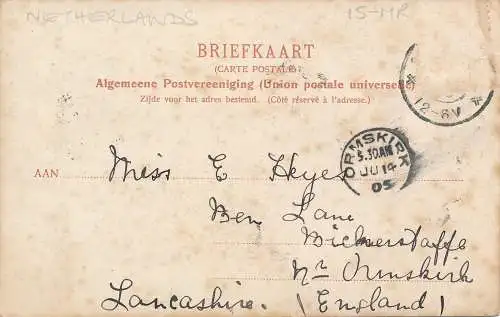 NETHERLANDS
15-MR
BRIEFKAART
(CARTE POSTALE)
Algemeene Postvereeniging (Union postale universelle)
Zijde voor het adres bestemd. (Côté réservé à l'adresse.)
12-6V
ORMSKIRK
5.30AM
JU 14
05
AAN Miss E Heyes
Ben Lane
Bickerstaffe
Nr Ormskirk
Lancashire. (England)